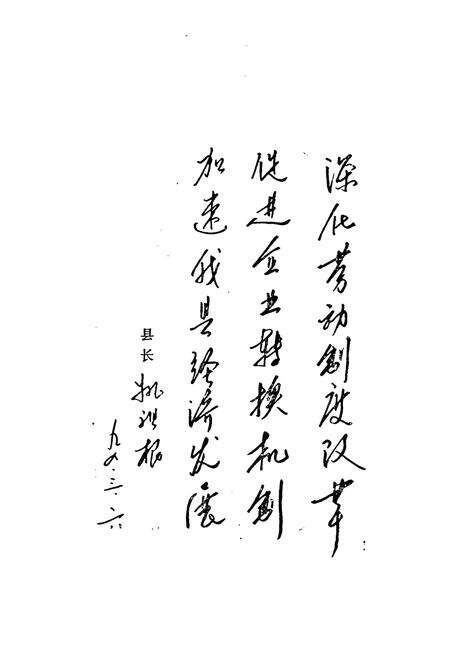 深化劳动制度改革
促进企业转换机制
加速我县经济发展
县长
九 三·六